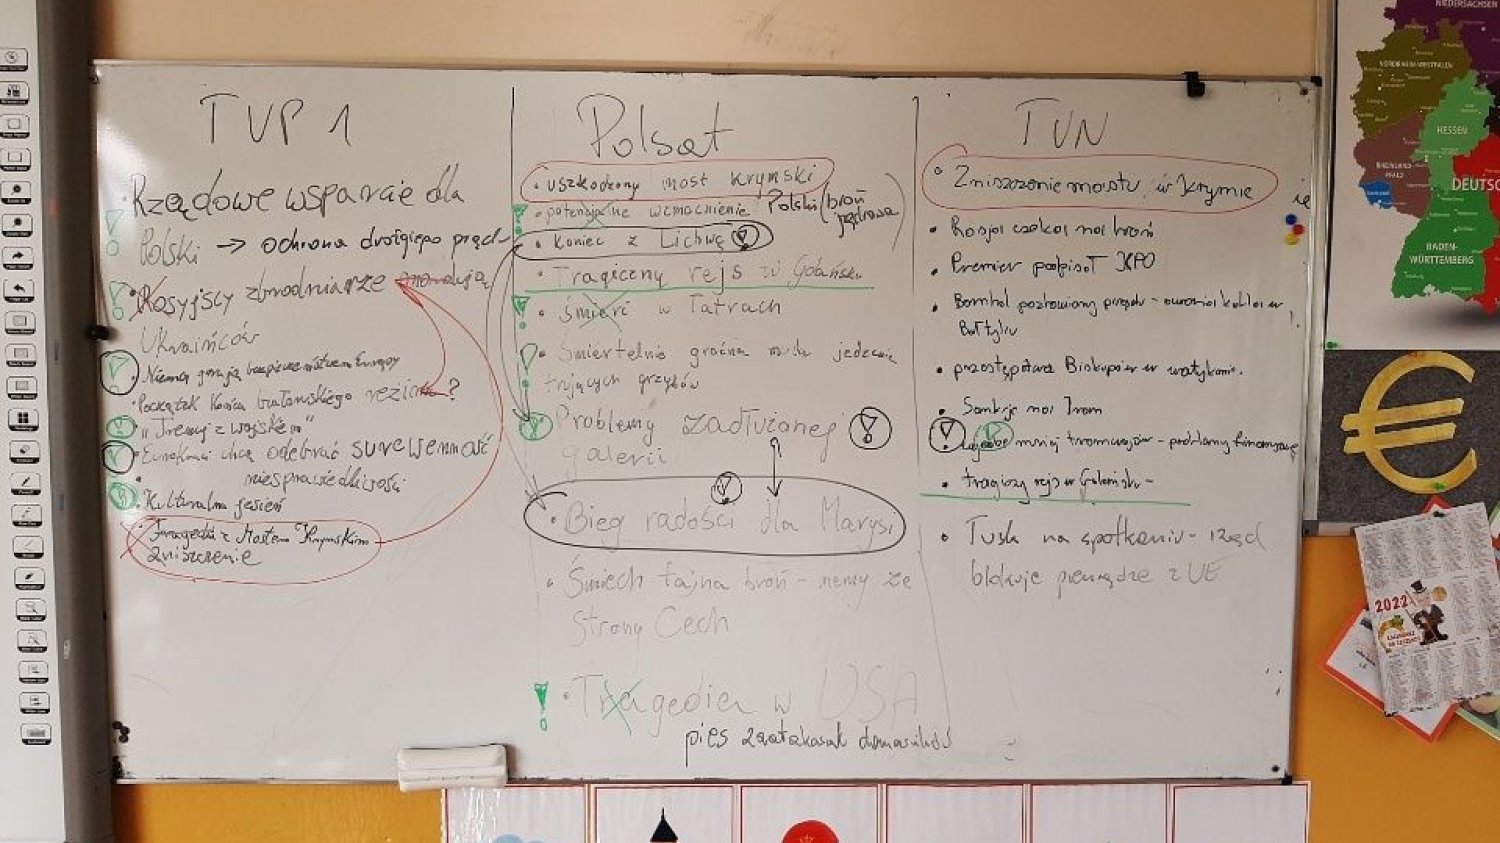 TVP 1
Rządowe wsparcie dla
Polski → ochrona drożejącego prądu
Rosyjscy zbrodniarze mordują
Ukraińców
Niemcy grożą bezpieczeństwu Europy
Początek końca reżimu?
"Trenuj z wojskiem"
Eurokraci chcą odebrać suwerenność
niesprawiedliwość
Kulturalna jesień
Tragedia z Mostem Krymskim
zniszczenie
Polsat
uszkodzony most krymski
potencjalne wzmocnienie Polski (broń
jądrowa
Koniec z Lichwą
Tragiczny rejs w Gdańsku
Śmierć w Tatrach
Śmiertelnie groźna moda jedzenia
trujących grzybów
Problemy zadłużonej
galerii
Bieg radości dla Marysi
Śmiech tajna broń - memy ze
strony Cech
Tragedia w USA
pies zaatakował domowników
TVN
Zniszczenie mostu w Krymie
Rosja czeka na broń
Premier podpisał KPO
Bałtyku
przestępstwa Biskupów w watykanie.
Sankcje na Iran
mniej tramwajów - problemy finansowe
tragiczny rejs w Gdańsku -
Tusk na spotkaniu - rząd
blokuje pieniądze z UE
NIEDERSACHSEN
NORDRHEIN-WESTFALEN
HESSEN
RHEINLAND-
PFALZ
DEUTSC
BADEN-
WÜRTTEMBERG
€
2022